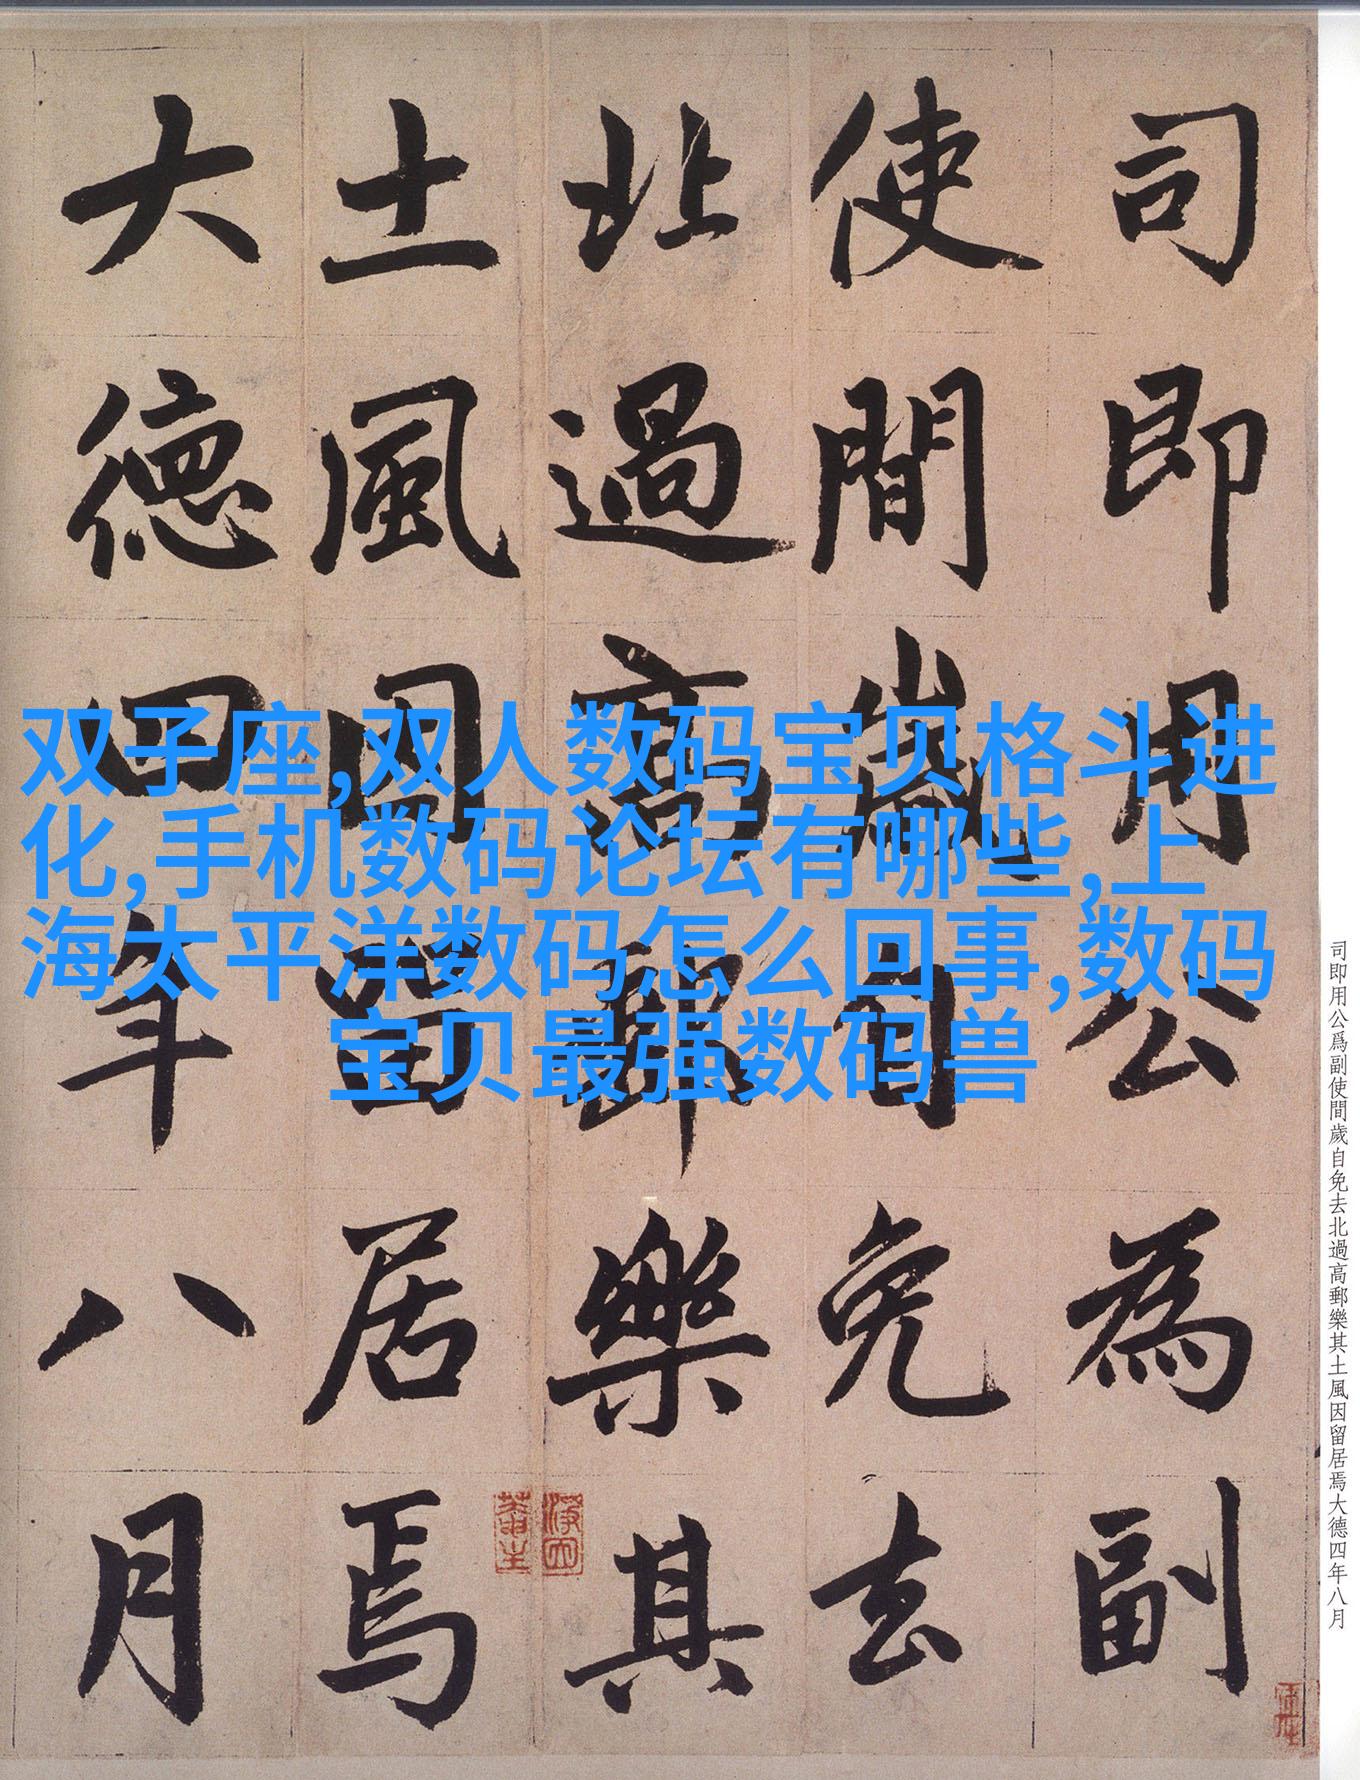 司即用公為副
使間歲自免去
北過高郵樂其
土風因留居焉
大德四年八月
双子座,双人数码宝贝格斗进
化,手机数码论坛有哪些,上
海太平洋数码怎么回事,数码
宝贝最强数码兽
司即用公爲副使間歲自免去北過高郵樂其土風因留居焉大德四年八月